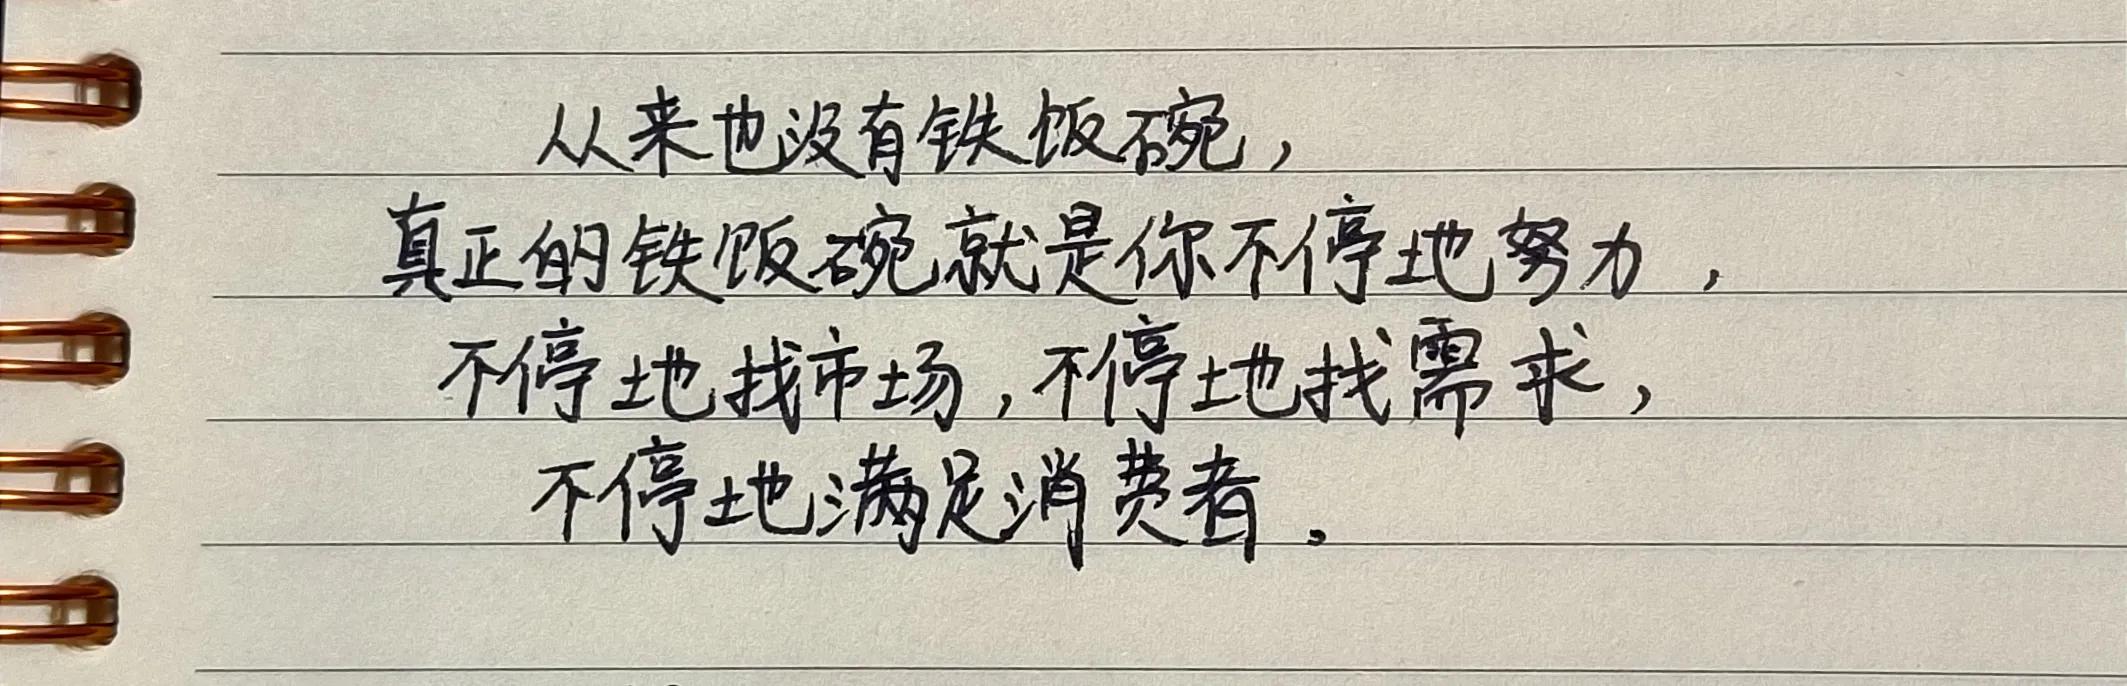 从来也没有铁饭碗，
真正的铁饭碗就是你不停地努力，
不停地找市场，不停地找需求，
不停地满足消费者。